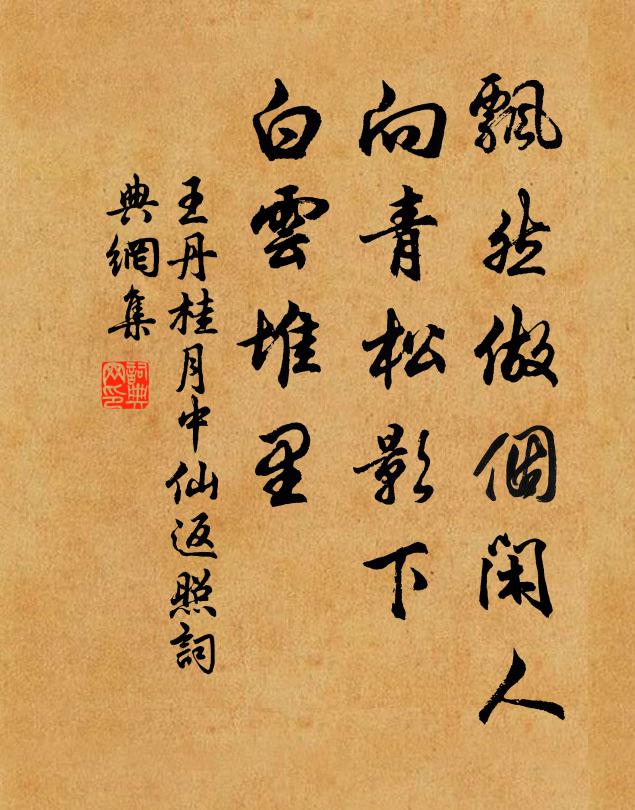 飄然做個閑人
向青松影下
白雲堆里
王丹桂月中仙返照詞
典網集
詞典網印